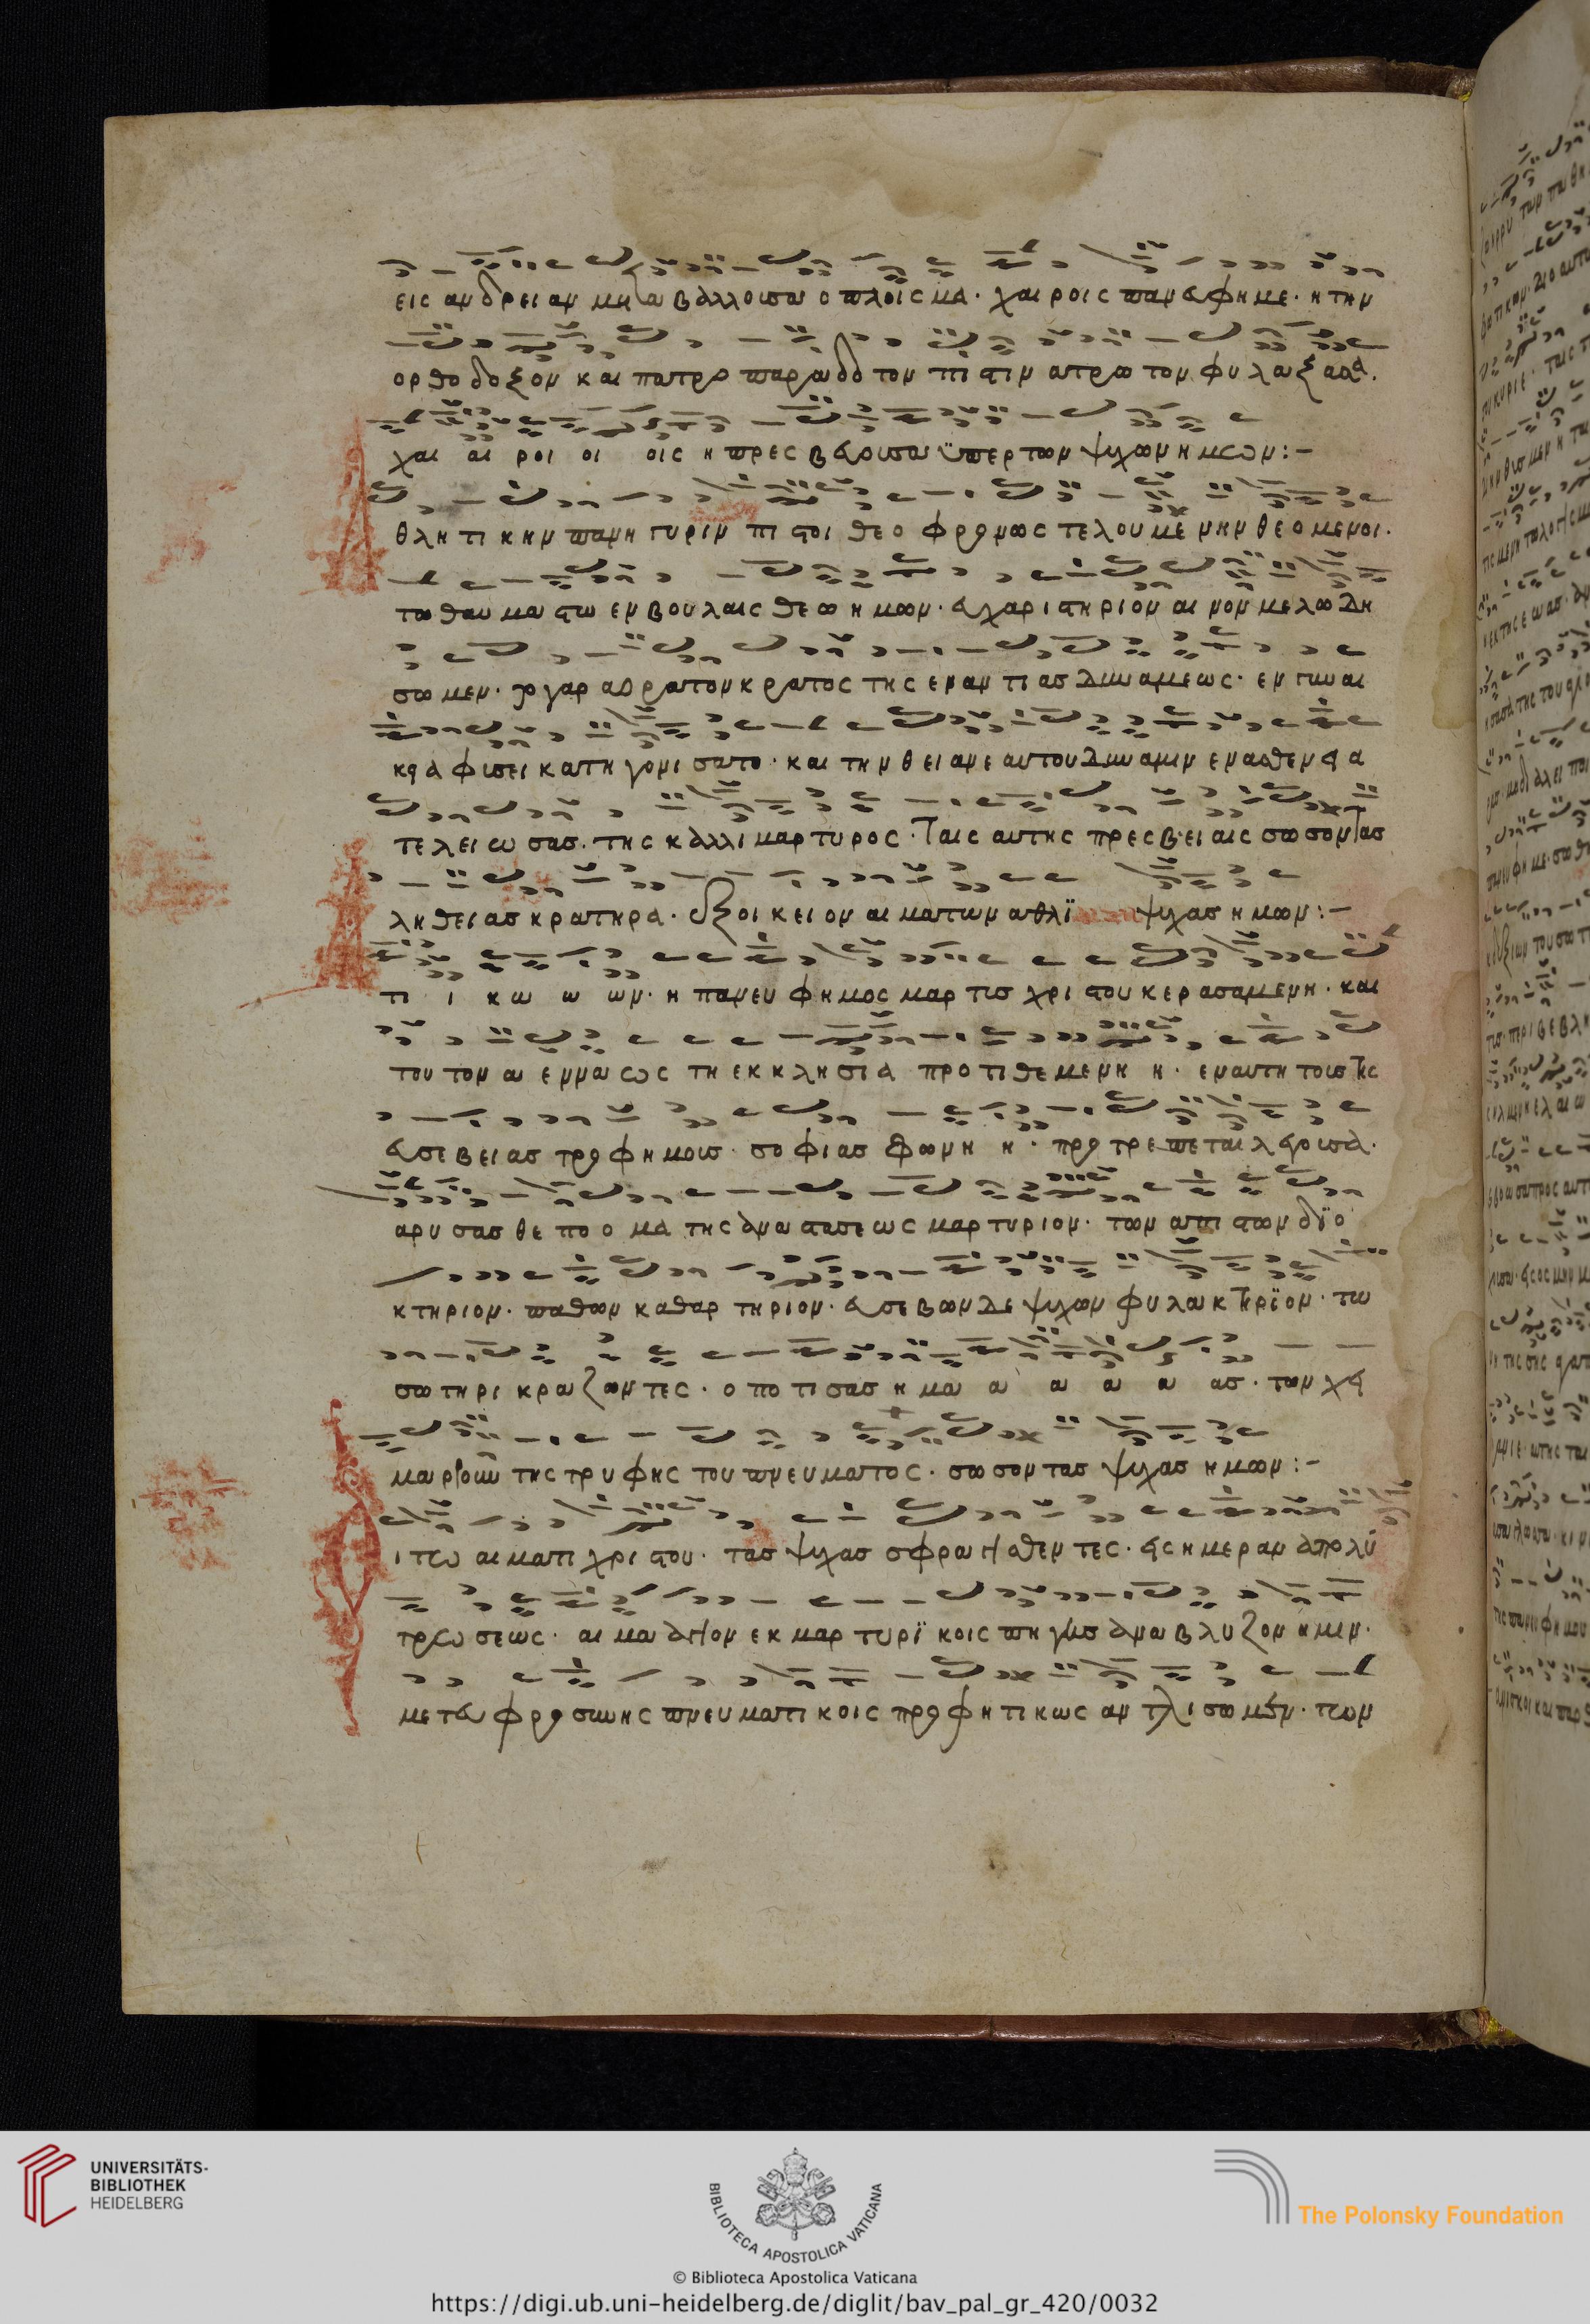 εις ανδρειαν μεταβαλλουσα οπλοις μα· χαιροις πανευφημε· η την
ορθοδοξον και πατροπαραδοτον πιστιν ατρωτον φυλαξασα.
χαι αι ροι οι οις η πρεσβευουσα ϋπερ των ψυχων ημων:–
θλητικην πανηγυριν πιστοι θεοφρονως τελουμενην θεομενοι·
τω θαυμαστω εν βουλαις θεω ημων· ευχαριστηριον αινον μελωδη
σωμεν· το γαρ αορατον κρατος της εναντιας δυναμεως· εν γυναι
κεια φυσει κατηγωνισατο· και την θειαν εαυτου δυναμιν εν ασθενεια
τελειωσας· της καλλιμαρτυρος· ταις αυτης πρεσβειαις σωσον τας
ληθειας κρατηρα· εξ οικειον αιματων αθλϊ ψυχας ημων:–
τι ι κω ω ων· η πανευφημος μαρτυς χριστου κερασαμενη· και
τουτον αεννα ως τη εκκλησια προτιθεμενη η· εν αυτη τοις της
ευσεβειας τροφημοις· σοφιας φωνη η· προτρεπεται λεγουσα·
αρυσασθε ποομα της αναστασεως μαρτυριον· των απιστων δϊο
κτηριον· παθων καθαρτηριον· ευσεβων δε ψυχων φυλακτηρϊον· τω
σωτηρι κραζοντες· ο ποτισας ημα α α α α ας· των χει
μαρρουν της τρυφης του πνευματος· σωσον τας ψυχας ημων:–
ι τω αιματι χριστου· τας ψυχας σφραγισθεντες· εις ημεραν απολυ
τρωσεως· αιμα αγιον εκ μαρτυρϊκοις πηγαις αναβλυζον ημιν·
μετ ευφροσυνης πνευματικοις προφητικως αντλισωμεν· των
UNIVERSITÄTS-
BIBLIOTHEK
HEIDELBERG
BIBLIOTECA APOSTOLICA VATICANA
The Polonsky Foundation
© Biblioteca Apostolica Vaticana
https://digi.ub.uni-heidelberg.de/diglit/bav_pal_gr_420/0032